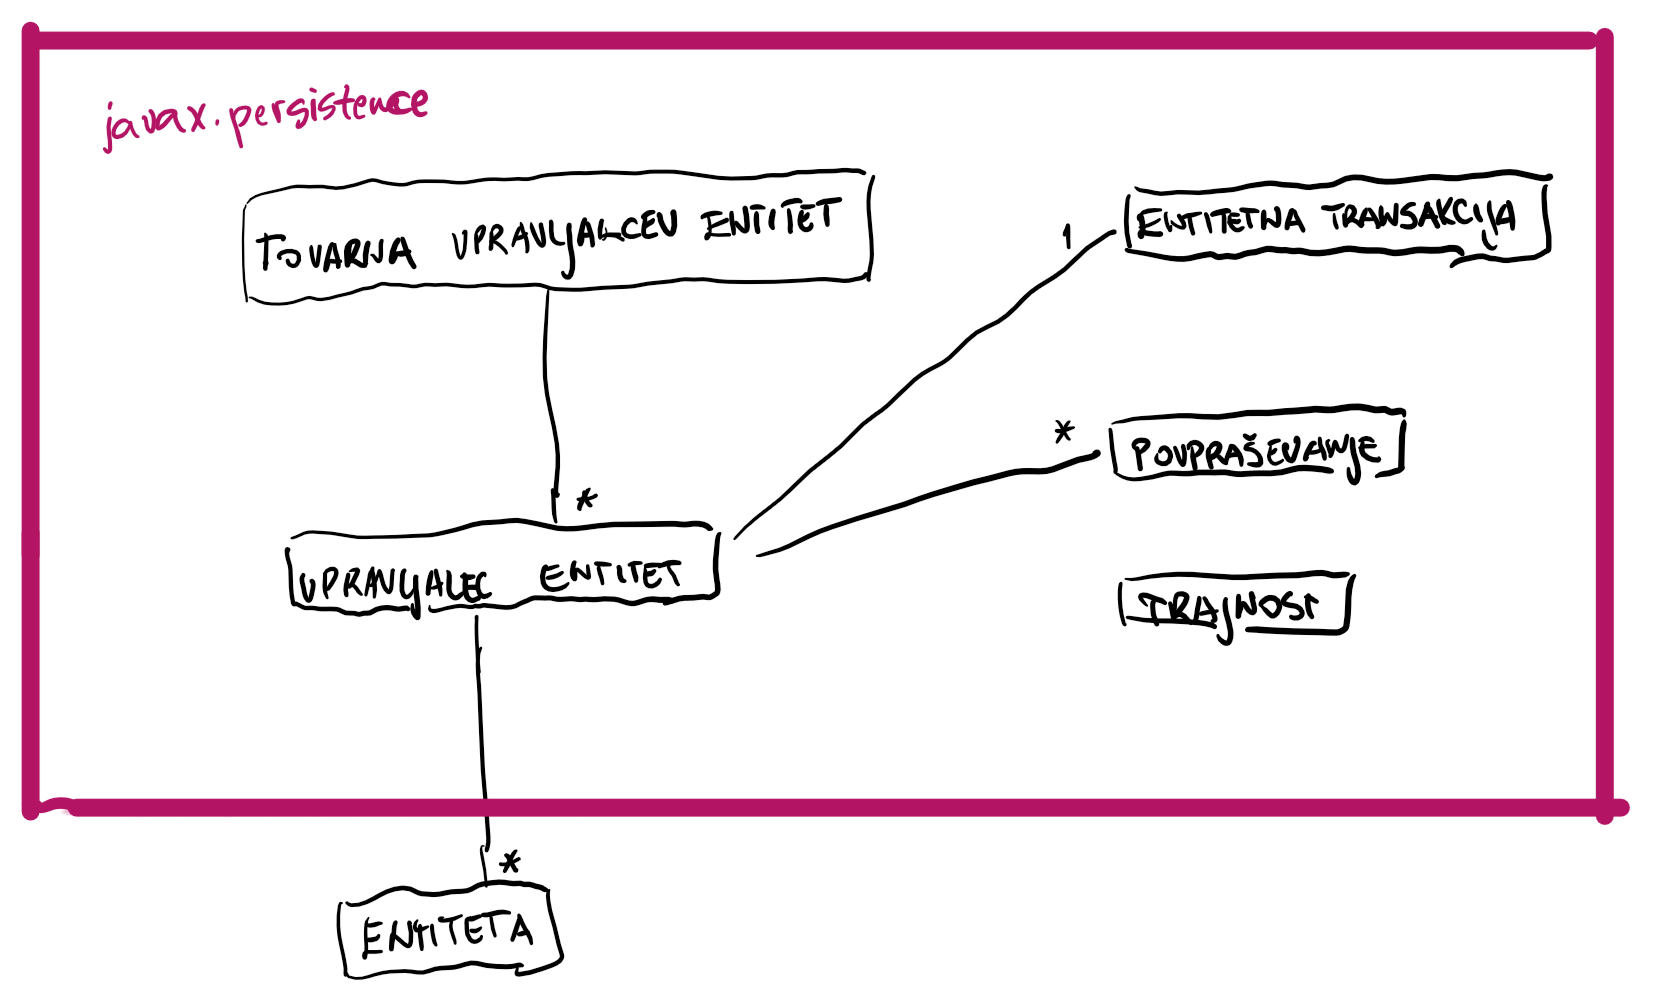 javax.persistence
TOVARNA UPRAVLJALCEV ENTITET
1
ENTITETNA TRANSAKCIJA
*
POVPRAŠEVANJE
*
UPRAVLJALEC ENTITET
TRAJNOST
*
ENTITETA